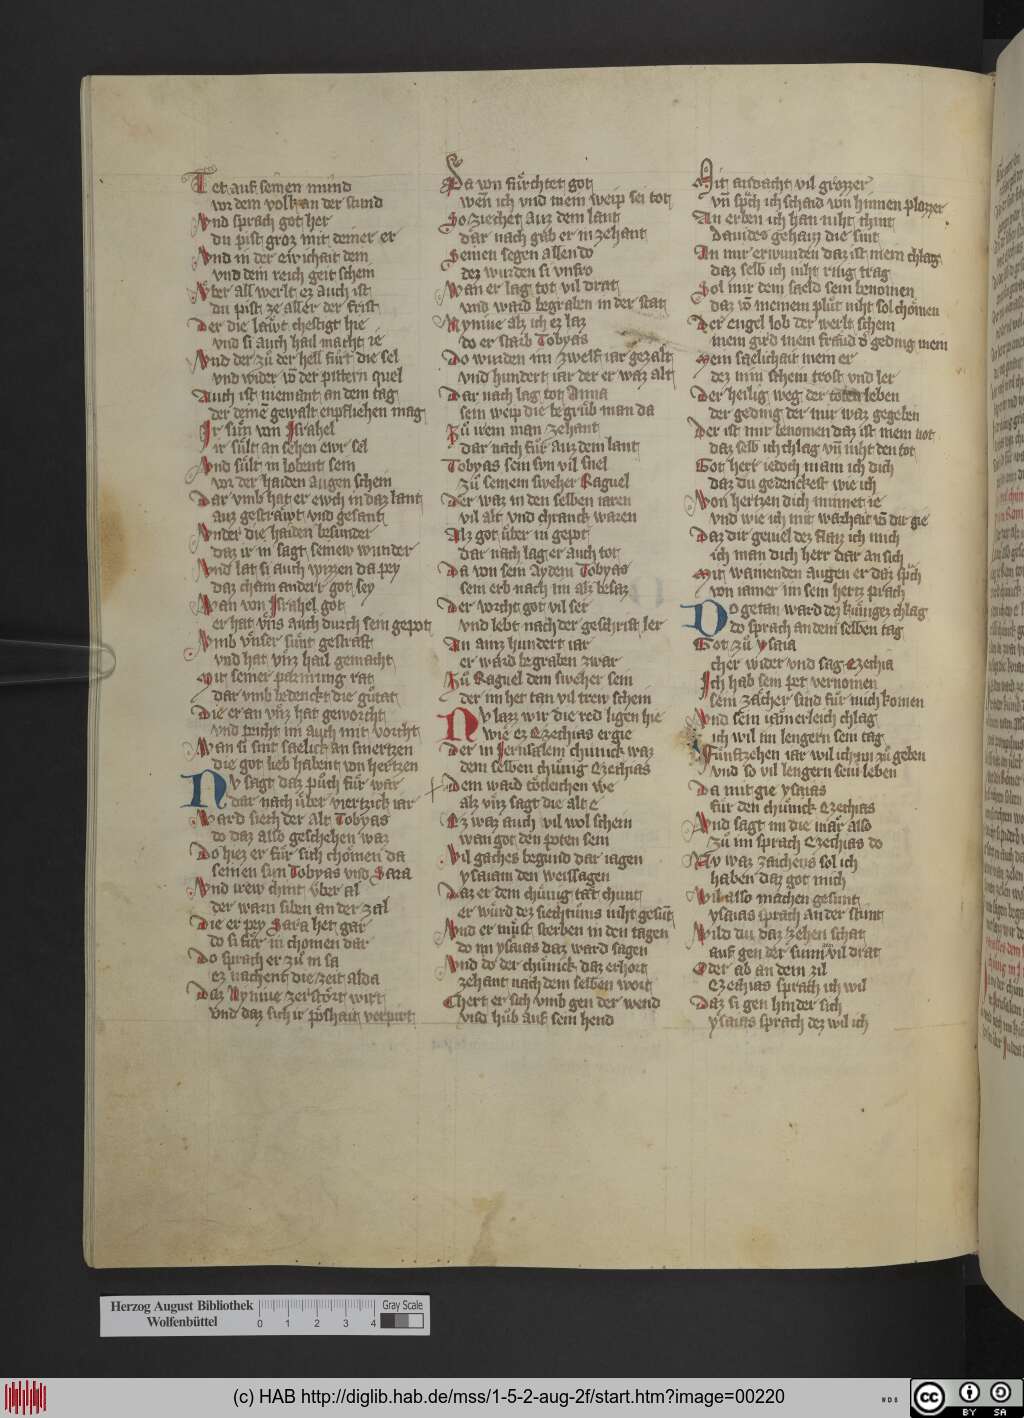 Tet auf seinen mund
vor dem volk an der stund
Vnd sprach got her
du pist groz mit deiner er
Vnd in der ewichait dein
vnd dein reich geit schein
Vber all werlt ez auch ist
du pist ze aller der frist
Der die läwt chestigt hie
vnd si auch hail macht ie
Vnd der zů der hell fůrt die sel
vnd wider vō der pittern quel
Auch ist niemant an dem tag
der deinē gewalt enpfliehen mag
Ir sün von Israhel
ir sült an sehen ewr sel
Vnd sült in lobent sein
vor der haiden augen schein
Dar vmb hat er ewch in daz lant
auz gesträwt vnd gesant
Vnder die haiden besunder
daz ir in sagt seinew wunder
Vnd lat si auch wizzen da pey
daz chain ander got sey
Wan von Israhel got
er hat vns auch durch sein gepot
Vmb vnser sünt gestraft
vnd hat vnz hail gemacht
Mit seiner parmung rat
dar vmb bedenckt die gůtat
Die er an vnz hat geworcht
vnd peicht im auch mit vorcht
Wan si sint saelick an smertzen
die got lieb habent von hertzen
Nv sagt daz půch für war
dar nach über viertzick iar
Ward siech der alt Tobyas
do daz also geschehen waz
Do hiez er für sich chömen da
seinen sun Tobyas vnd Sara
Vnd irew chint vber al
der warn siben an der zal
Die er pey Sara het gar
do si für in chomen dar
Do sprach er zů in sa
ez nachent die zeit alda
Daz Nyniue zerstört wirt
vnd daz sich ir poshait verpirt
Da von fürchtet got
wen ich vnd mein weip sei tot
So ziechet auz dem lant
dar nach gab er in zehant
Seinen segen allen do
dez wurden si vnfro
Wan er lag tot vil drat
vnd ward begraben in der stat
Nyniue alz ich ez laz
do er starb Tobyas
Do wurden im zwelf iar gezalt
vnd hundert iar der er waz alt
Dar nach lag tot Anna
sein weip die begrůb man da
Zů irem man zehant
dar nach für auz dem lant
Tobyas sein sun vil snel
zů seinem sweher Raguel
Der waz in den selben iaren
vil alt vnd chranck waren
Alz got über in gepot
dar nach lag er auch tot
Da von sein Aydem Tobyas
sein erb nach im alz besaz
Der vorcht got vil ser
vnd lebt nach der geschrift ler
An ainz hundert iar
er ward begraben zwar
Zů Raguel dem sweher sein
der im het tan vil trew schein
Nv lazz wir die red ligen hie
wie ez Ezechias ergie
Der in Jerusalem chünick waz
dem selben chünig Ezechias
Dem ward tötleichen we
alz vnz sagt die alt e
Ez waz auch vil wol schein
wan got den poten sein
Vil gaches begund dar iagen
ysaiam den weissagen
Daz er dem chünig tät chunt
er würd dez siechtums niht gesūt
Vnd er müst sterben in den tagen
do im ysaias daz ward sagen
Vnd do der chünick daz erhort
zehant nach dem selben wort
Chert er sich vmb gen der wend
vnd hůb auf sein hend
Mit andacht vil grozzer
vn̄ sp̄ch ich schaid von hinnen plozzer
An erben ich han niht chint
Dauides gehaizz die sint
An mir erwunden daz ist mein chlag
daz selb ich niht rüig trag
Sol mir dem saeld sein benomen
daz vō meinem plůt niht sol chömen
Der engel lob der werlt schein
mein gird mein fraud ō geding mein
Mein saelichait mein er
dez min schein trost vnd ler
Der heilig weg der toten leben
der geding der mir waz gegeben
Der ist mir benomen daz ist mein not
daz selb ich chlag vn̄ niht den tot
Got herr iedoch man ich dich
daz du gedenckest wie ich
Von hertzen dich minnet ie
vnd wie ich mit warhait vō dir gie
Daz dir geuiel dez flaiz ich mich
ich man dich herr dar an sich
Mit wainenden augen er daz sp̄ch
von iamer im sein hertz prach
Do getan ward dez küniges chlag
do sprach an dem selben tag
Got zů ysaia
cher wider vnd sag Ezechia
Ich hab sein pet vernomen
sein zächer sind für mich komen
Vnd sein iämerleich chlag
ich wil im lengern sein tag
Fünftzehen iar wil ich im zů geben
vnd so vil lengern sein leben
Da mit gie ysaias
für den chünick Ezechias
Vnd sagt im die mär also
zů im sprach Ezechias do
Ny waz zaichens sol ich
haben daz got mich
Wil also machen gesunt
ysaias sprach an der stunt
Wild du daz zehen schat
auf gen der sunn vil drat
Oder ab an dem zil
Ezechias sprach ich wil
Daz si gen hinder sich
ysaias sprach dez wil ich
Herzog August Bibliothek
Wolfenbüttel
0 1 2 3 4
Gray Scale
(c) HAB http://diglib.hab.de/mss/1-5-2-aug-2f/start.htm?image=00220
WDB
cc BY SA